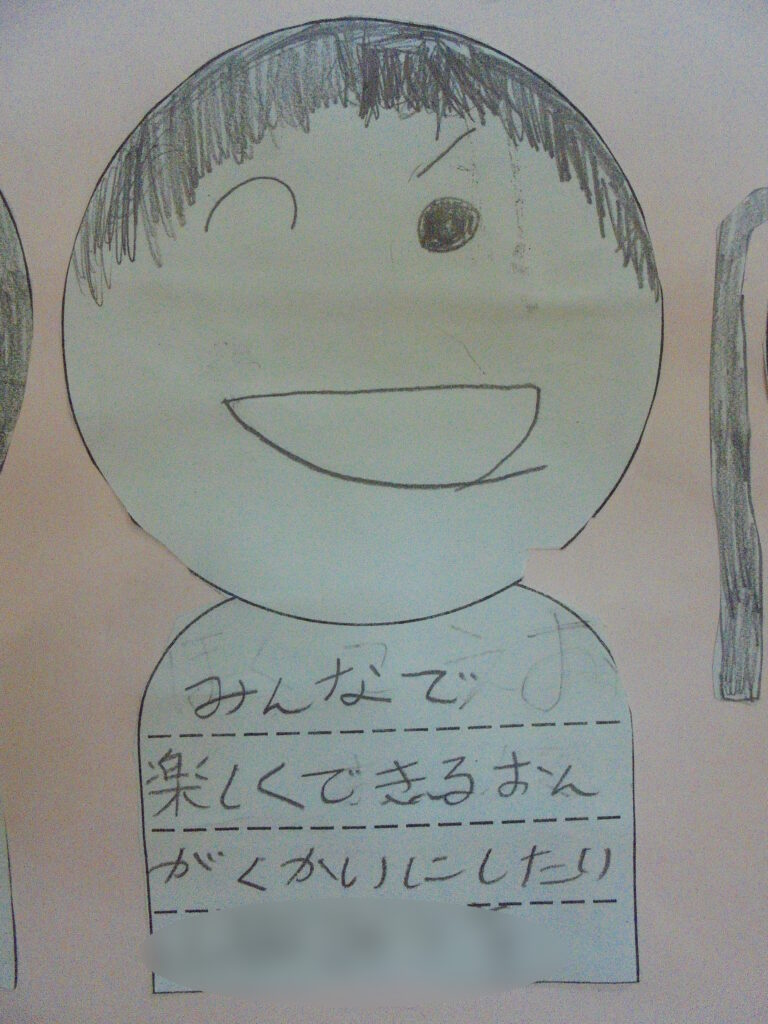 みんなで
楽しくできるおん
がくかいにしたり